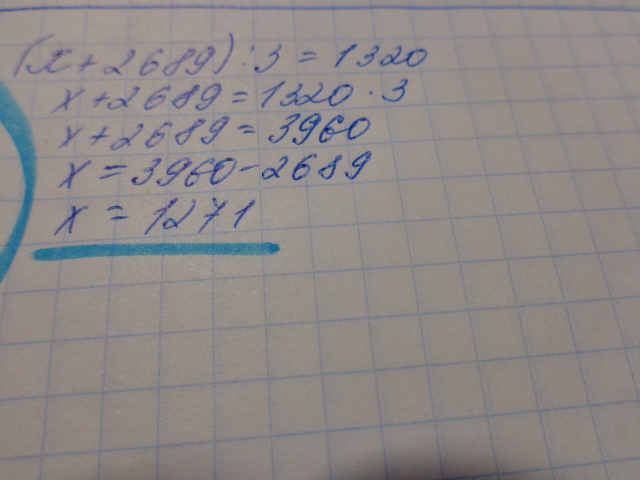 (x+2689):3=1320
x+2689=1320·3
x+2689=3960
x=3960-2689
x=1271